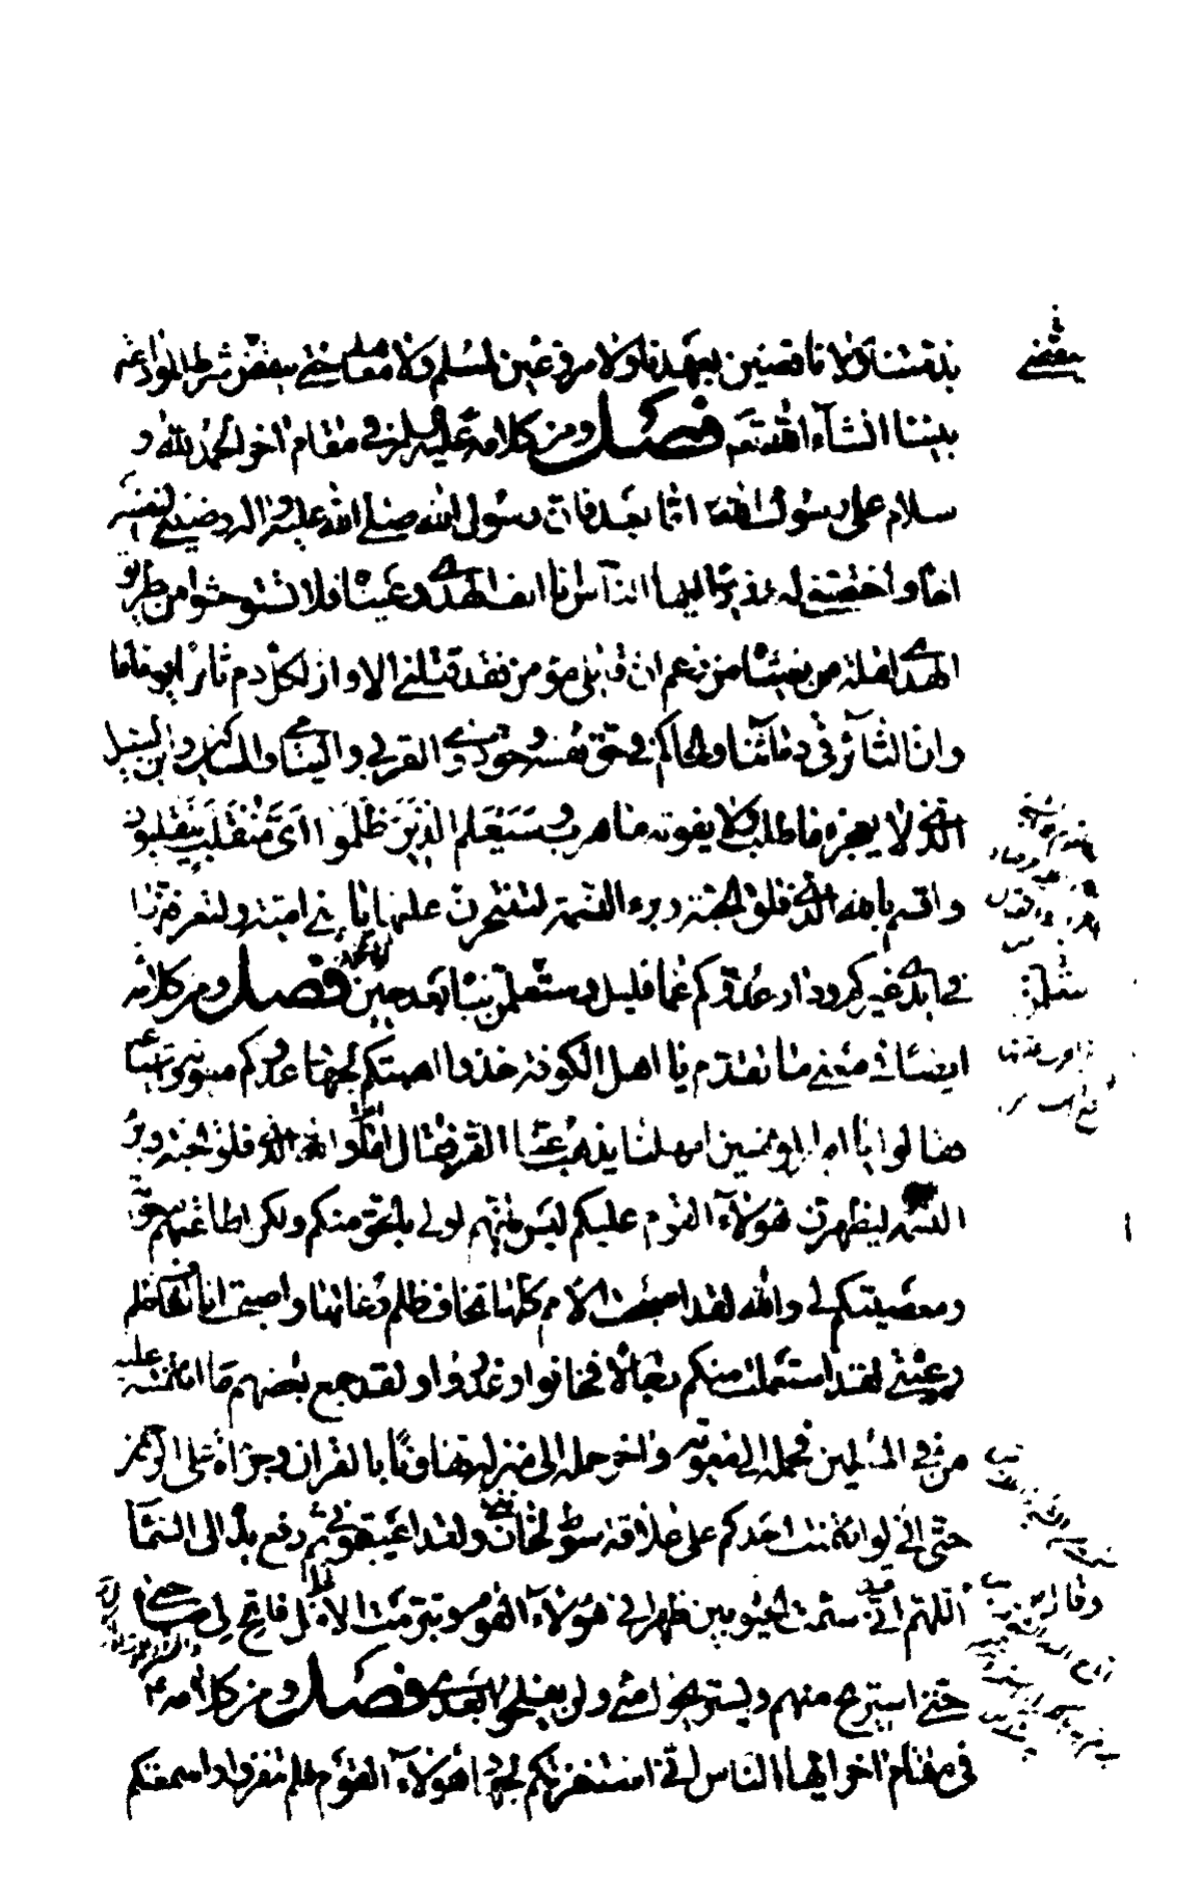 بذمتنا ولا ناقضين لعهدنا ولا مروعين لمسلم ولا معاهد حتى ينقضي شرط الموادعة
بيننا انشاء الله تعالى فصل ومن كلامه عليه السلم في مقام اخر الحمد لله و
سلام على رسول الله اما بعد فان رسول الله صلى الله عليه واله رضيني لنفسه
اخا واختصني له وزيرا ايها الناس انا انف الهدى وعيناه فلا تستوحشوا من طريق
الهدى لقلة من يغشاه من زعم ان قاتلي مؤمن فقد قتلني الا وان لكل دم ثائرا يوما ما
وان الثائر في دمائنا والحاكم في حق نفسه وحق ذوي القربى واليتامى والمساكين وابن السبيل
الذي لا يعجزه ما طلب ولا يفوته من هرب وسيعلم الذين ظلموا اي منقلب ينقلبون
واقسم بالله الذي فلق الحبة وبرء النسمة لتنتحرن عليها يا بني امية ولتعرفنها
في ايدي غيركم ودار عدوكم عما قليل وستعلمن نباه بعد حين فصل ومن كلامه
ايضا في معنى ما تقدم يا اهل الكوفة خذوا اهبتكم لجهاد عدوكم معوية واشياعه
فقالوا يا امير المؤمنين امهلنا يذهب عنا القر فقال اما والله الذي فلق الحبة وبرء
النسمة ليظهرن هؤلاء القوم عليكم ليس بانهم اولى بالحق منكم ولكن لطاعتهم معوية
ومعصيتكم لي والله لقد اصبحت الامم كلها تخاف ظلم رعاتها واصبحت انا اخاف ظلم
رعيتي لقد استعملت منكم رجالا فخانوا وغدروا ولقد جمع بعضهم ما ائتمنته عليه
من فيء المسلمين فحمله الى معوية واخر حمله الى منزله تهاونا بالقران وجرأة على الرحمن
حتى اني لو ائتمنت احدكم على علاقة سوط لخان ولقد اعييتموني ثم رفع يده الى السماء
وقال اللهم اني قد سئمت الحيوة بين ظهراني هؤلاء القوم وتبرمت الامل فاتح لي صاحبي
حتى استريح منهم ويستريحوا مني ولن يفلحوا بعدي فصل ومن كلامه ع
في مقام اخر ايها الناس اني استنفرتكم لجهاد هؤلاء القوم فلم تنفروا واسمعتكم